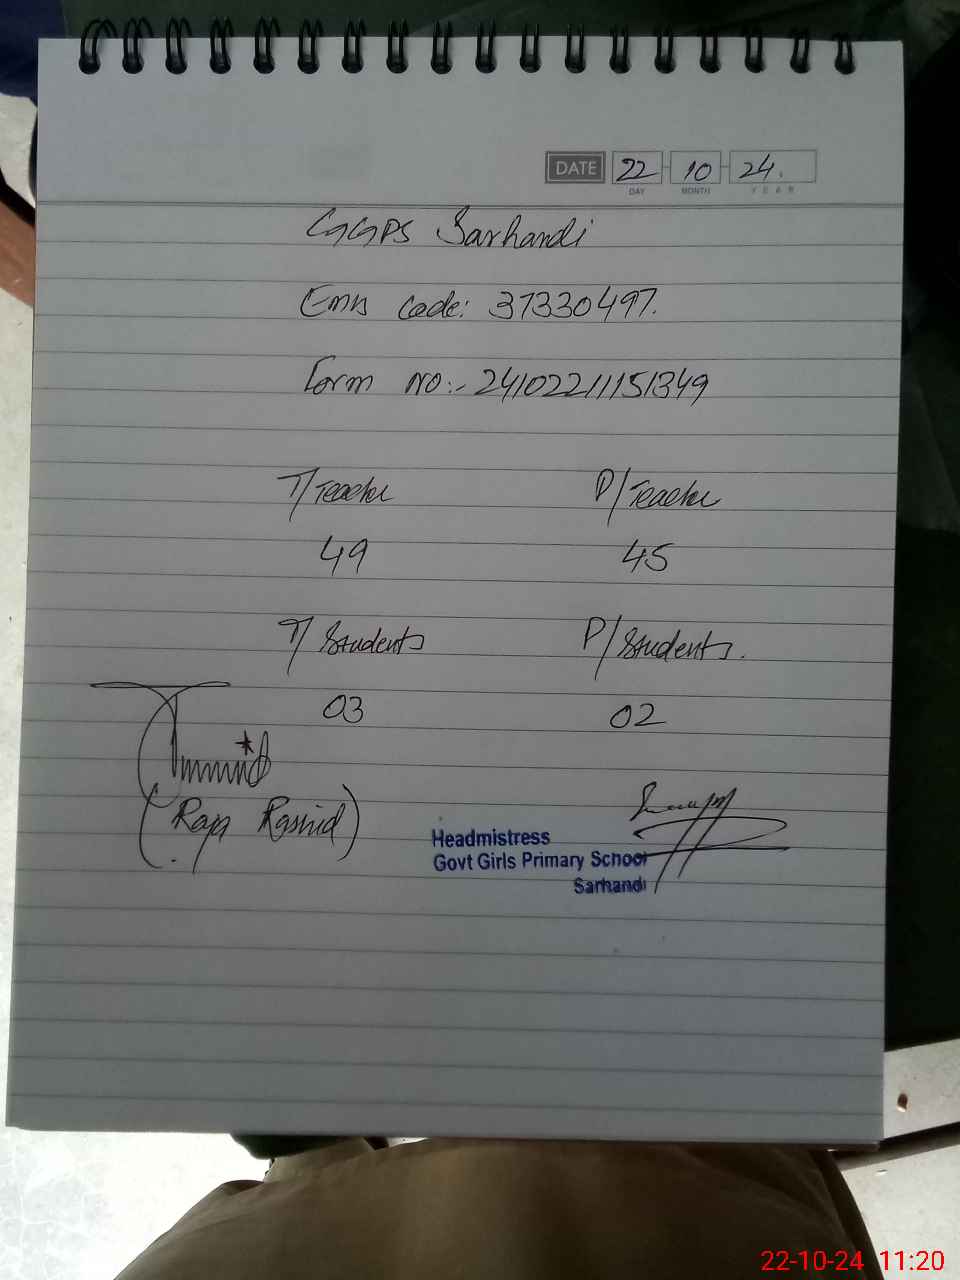 DATE 22 10 24.
DAY MONTH YEAR
GGPS Sarhandi
Emis Code: 37330497.
Form no:- 24102211151349
T/Teacher P/Teacher
49 45
T/Students P/Students.
03 02
(Raja Rashid)
Headmistress
Govt Girls Primary School
Sarhandi
22-10-24 11:20